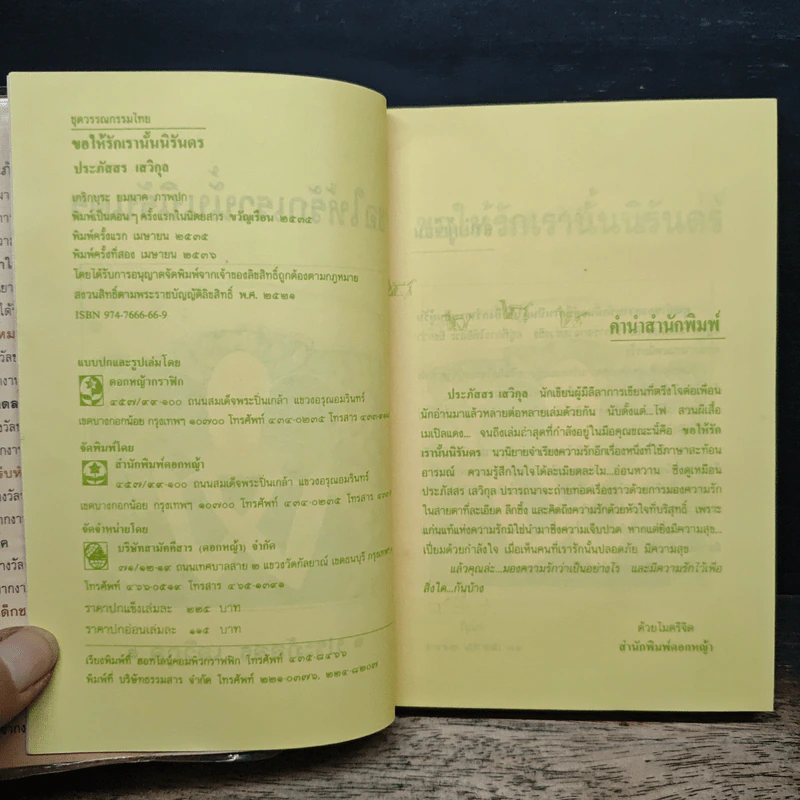 ชุดวรรณกรรมไทย
ขอให้รักเรานั้นนิรันดร
ประภัสสร เสวิกุล
เกริกบุระ ยมนาค ภาพปก
พิมพ์เป็นตอนๆ ครั้งแรกในนิตยสาร ขวัญเรือน ๒๕๓๔
พิมพ์ครั้งแรก เมษายน ๒๕๓๕
พิมพ์ครั้งที่สอง เมษายน ๒๕๓๖
โดยได้รับการอนุญาตจัดพิมพ์จากเจ้าของลิขสิทธิ์ถูกต้องตามกฎหมาย
สงวนลิขสิทธิ์ตามพระราชบัญญัติลิขสิทธิ์ พ.ศ. ๒๕๒๑
ISBN 974-7666-66-9
แบบปกและรูปเล่มโดย
ดอกหญ้ากราฟิก
๔๕๗/๙๙-๑๐๐ ถนนสมเด็จพระปิ่นเกล้า แขวงอรุณอมรินทร์
เขตบางกอกน้อย กรุงเทพฯ ๑๐๗๐๐ โทรศัพท์ ๔๓๔-๐๒๓๕ โทรสาร
จัดพิมพ์โดย
สำนักพิมพ์ดอกหญ้า
๔๕๗/๙๙-๑๐๐ ถนนสมเด็จพระปิ่นเกล้า แขวงอรุณอมรินทร์
เขตบางกอกน้อย กรุงเทพฯ ๑๐๗๐๐ โทรศัพท์ ๔๓๔-๐๒๓๕ โทรสาร
จัดจำหน่ายโดย
บริษัทสามัคคีสาร (ดอกหญ้า) จำกัด
๗๑/๑๒-๑๙ ถนนเทศบาลสาย ๒ แขวงวัดกัลยาณ์ เขตธนบุรี
โทรศัพท์ ๔๖๖-๐๕๑๙ โทรสาร ๔๖๕-๑๓๙๑
ราคาปกแข็งเล่มละ ๒๒๕ บาท
ราคาปกอ่อนเล่มละ ๑๑๕ บาท
เรียงพิมพ์ที่ ฮอทไลน์คอมพิวกราฟฟิก โทรศัพท์ ๔๓๕-๘๔๖๖
พิมพ์ที่ บริษัทธรรมสาร จำกัด โทรศัพท์ ๒๒๑-๐๓๗๖, ๒๒๔-๘๒๐๗
คำนำสำนักพิมพ์
ประภัสสร เสวิกุล นักเขียนผู้มีลีลาการเขียนที่ตรึงใจต่อเพื่อน
นักอ่านมาแล้วหลายต่อหลายเล่มด้วยกัน นับตั้งแต่...ไฟ สวนผีเสื้อ
เมเปิลแดง... จนถึงเล่มล่าสุดที่กำลังอยู่ในมือคุณขณะนี้คือ ขอให้รัก
เรานั้นนิรันดร นวนิยายจำเรียงความรักอีกเรื่องหนึ่งที่ใช้ภาษาสะท้อน
อารมณ์ ความรู้สึกในใจได้ละเมียดละไม...อ่อนหวาน ซึ่งดูเหมือน
ประภัสสร เสวิกุล ปรารถนาจะถ่ายทอดเรื่องราวด้วยการมองความรัก
ในสายตาที่ละเอียด ลึกซึ้ง และคิดถึงความรักด้วยหัวใจที่บริสุทธิ์ เพราะ
แก่นแท้แห่งความรักมิใช่นำมาซึ่งความเจ็บปวด หากแต่ยังมีความสุข...
เปี่ยมด้วยกำลังใจ เมื่อเห็นคนที่เรารักนั้นปลอดภัย มีความสุข
แล้วคุณล่ะ...มองความรักว่าเป็นอย่างไร และมีความรักไว้เพื่อ
สิ่งใด...กันบ้าง
ด้วยไมตรีจิต
สำนักพิมพ์ดอกหญ้า